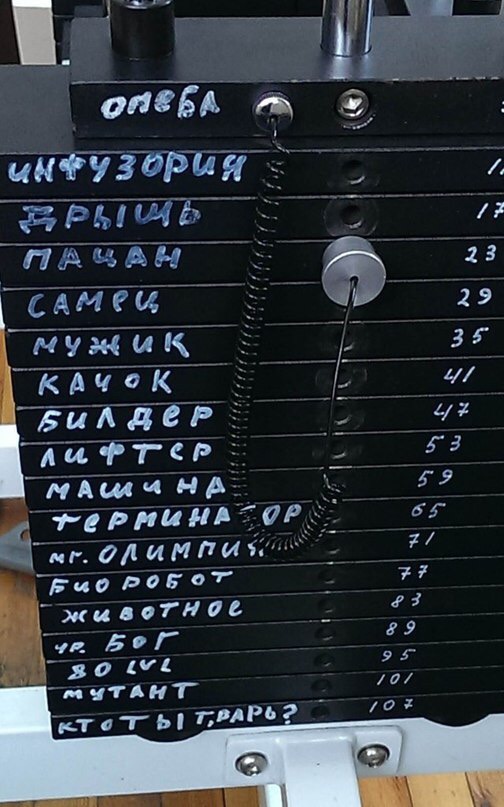 ОМЕБА
ИНФУЗОРИЯ
ДРЫЩЬ 17
ПАЦАН 23
САМЕЦ 29
МУЖИК 35
КАЧОК 41
БИЛДЕР 47
ЛИФТЕР 53
МАШИНА 59
ТЕРМИНАТОР 65
мг. ОЛИМПИЯ 71
БИОРОБОТ 77
ЖИВОТНОЕ 83
ур. БОГ 89
80 LVL 95
МУТАНТ 101
КТО ТЫ ТВАРЬ? 107